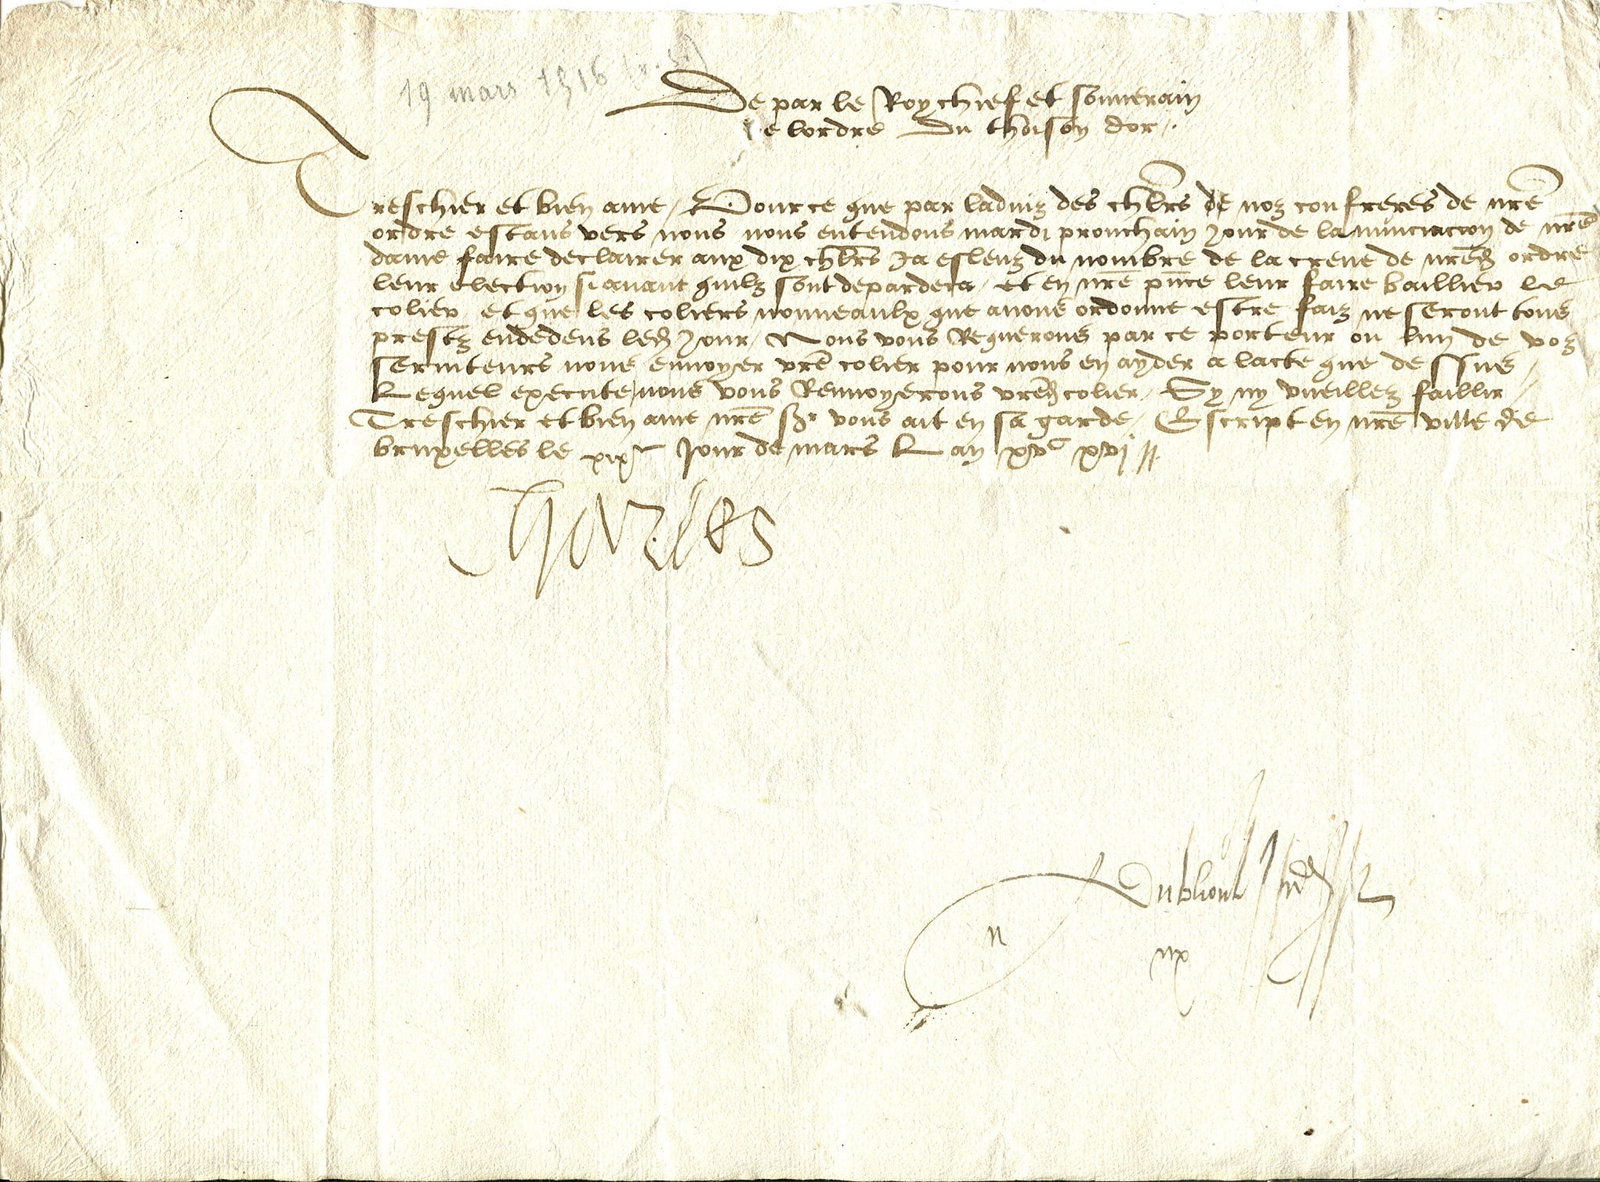 19 mars 1516 (v. st.)
De par le Roy chief et souverain
de lordre du thoison dor.
Treschier et bien ame, Pource que par ladviz des chlrs de noz confreres de nre
ordre estans vers nous nous entendons mardi prouchain jour de lanunciacion de nre
dame faire declairer aux dix chlrs ja esleuz du nombre de la creue de nred ordre
leur election si avant quilz sont pardeca, et en nre pnce leur faire baillier le
colier, et que les coliers nouveaulx que avons ordonne estre faiz ne seront tous
prestz endedens led jour, Nous vous Requerons par ce porteur ou lun de voz
serviteurs nous envoyer vre colier pour nous en ayder a lacte que dessus,
Lequel execute nous vous Renvoyerons vred colier, Sy ny vueillez faillir,
Treschier et bien ame nre sr vous ait en sa garde, Escript en nre ville de
bruxelles le xixe jour de mars Lan xvc xvj
Charles